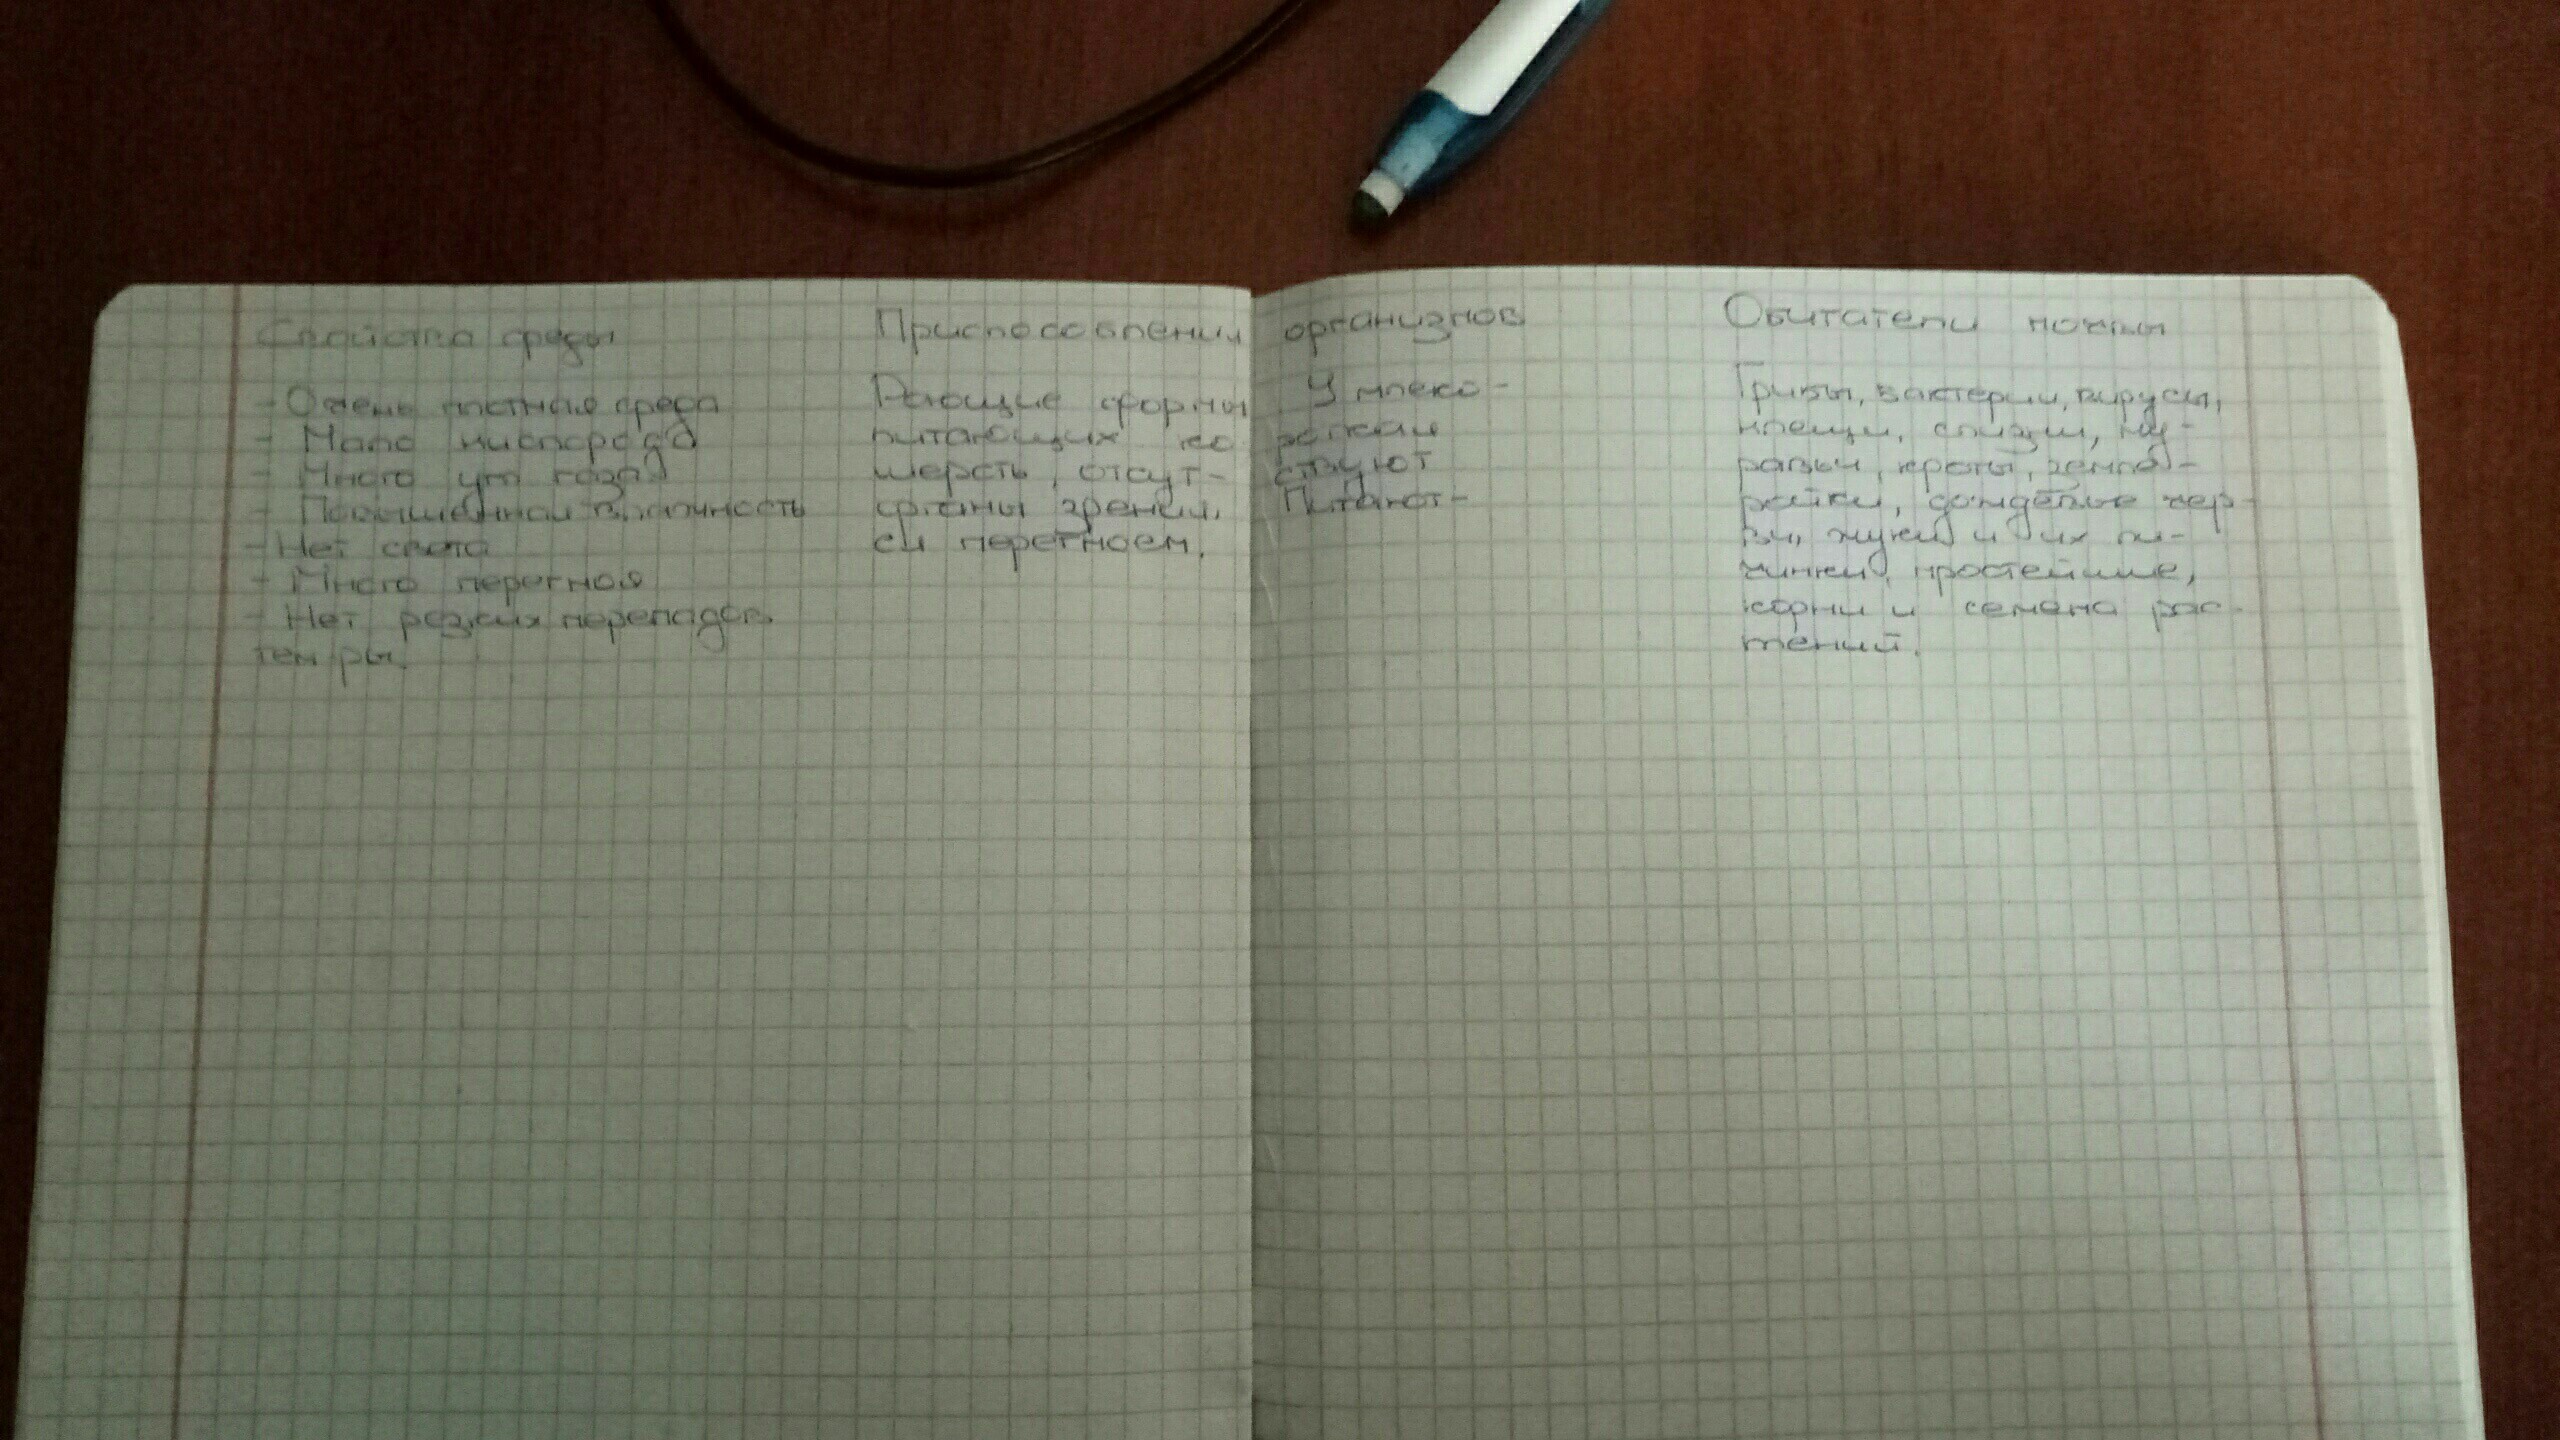 Свойства среды
- Очень плотная среда
- Мало кислорода
- Много угл. газа
- Повышенная влажность
- Нет света
- Много перегноя
- Нет резких перепадов
тем-ры.
Приспособления организмов
Роющие формы. У млеко-
питающих короткая
шерсть, отсутствуют
органы зрения. Питают-
ся перегноем.
Обитатели почвы
Грибы, бактерии, вирусы,
клещи, слизни, му-
равьи, кроты, земле-
ройки, дождевые чер-
ви, жуки и их ли-
чинки, простейшие,
корни и семена рас-
тений.